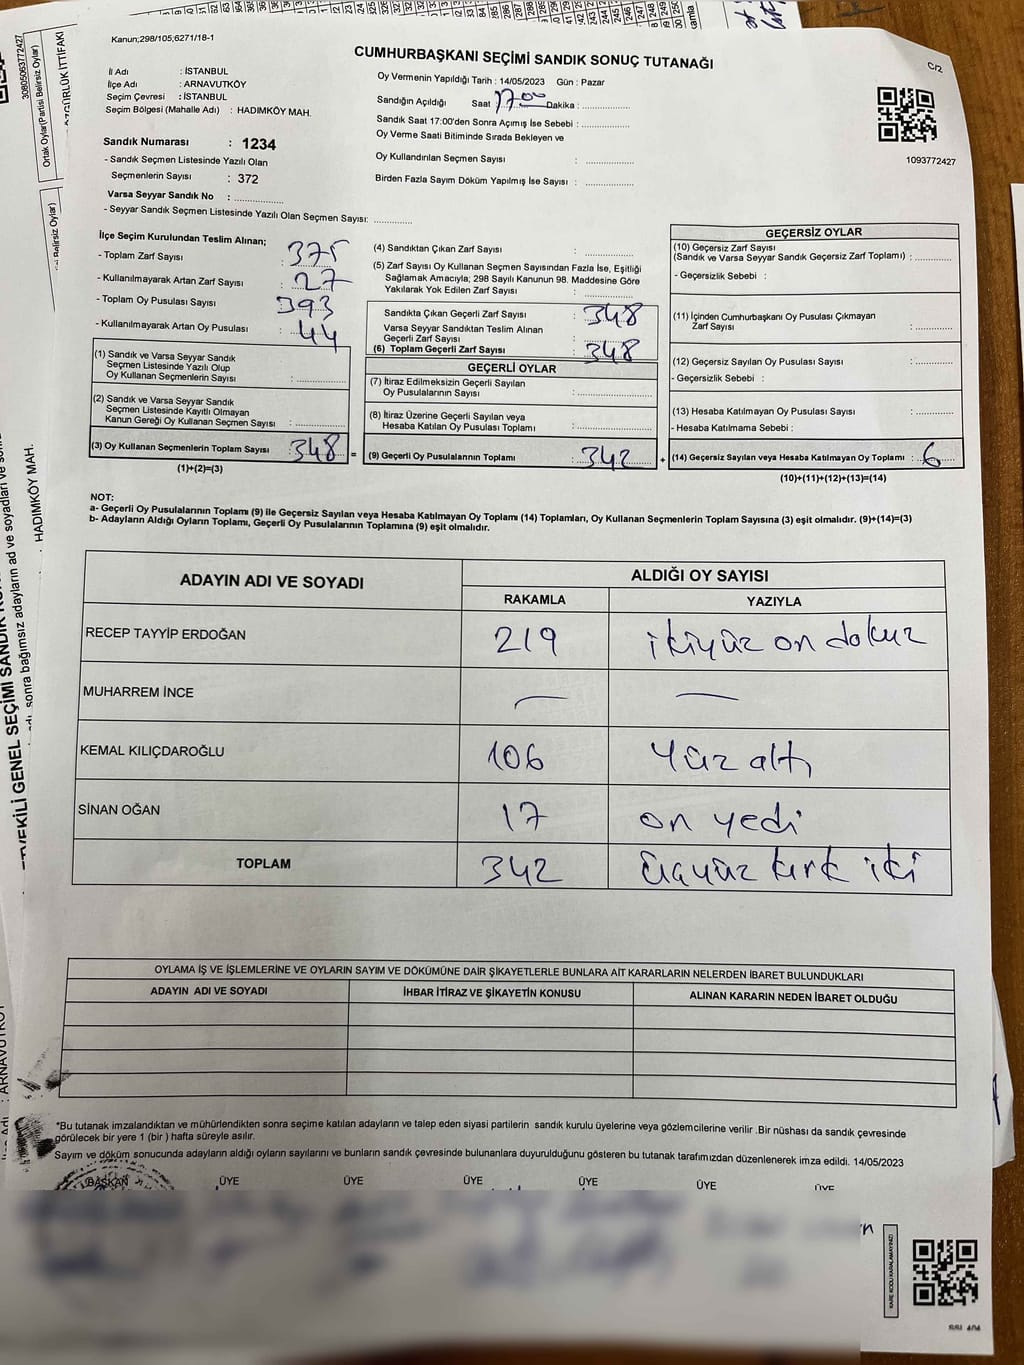 Kanun;298/105;6271/18-1
CUMHURBAŞKANI SEÇİMİ SANDIK SONUÇ TUTANAĞI
C/2
İl Adı : İSTANBUL
İlçe Adı : ARNAVUTKÖY
Seçim Çevresi : İSTANBUL
Seçim Bölgesi (Mahalle Adı) : HADIMKÖY MAH.
Sandık Numarası : 1234
- Sandık Seçmen Listesinde Yazılı Olan
Seçmenlerin Sayısı : 372
Varsa Seyyar Sandık No : ..............
- Seyyar Sandık Seçmen Listesinde Yazılı Olan Seçmen Sayısı: ............
Oy Vermenin Yapıldığı Tarih : 14/05/2023 Gün : Pazar
Sandığın Açıldığı Saat 17 00 Dakika : ..............
Sandık Saat 17:00'den Sonra Açımış İse Sebebi : ..............
Oy Verme Saati Bitiminde Sırada Bekleyen ve
Oy Kullandırılan Seçmen Sayısı : ..............
Birden Fazla Sayım Döküm Yapılmış İse Sayısı : ..............
1093772427
İlçe Seçim Kurulundan Teslim Alınan;
- Toplam Zarf Sayısı : 375
- Kullanılmayarak Artan Zarf Sayısı : 27
- Toplam Oy Pusulası Sayısı : 393
- Kullanılmayarak Artan Oy Pusulası : 44
(1) Sandık ve Varsa Seyyar Sandık
Seçmen Listesinde Yazılı Olup
Oy Kullanan Seçmenlerin Sayısı : ..............
(2) Sandık ve Varsa Seyyar Sandık
Seçmen Listesinde Kayıtlı Olmayan
Kanun Gereği Oy Kullanan Seçmen Sayısı : ..............
(3) Oy Kullanan Seçmenlerin Toplam Sayısı : 348
(1)+(2)=(3)
(4) Sandıktan Çıkan Zarf Sayısı : ..............
(5) Zarf Sayısı Oy Kullanan Seçmen Sayısından Fazla İse, Eşitliği
Sağlamak Amacıyla; 298 Sayılı Kanunun 98. Maddesine Göre
Yakılarak Yok Edilen Zarf Sayısı : ..............
Sandıkta Çıkan Geçerli Zarf Sayısı : 348
Varsa Seyyar Sandıktan Teslim Alınan
Geçerli Zarf Sayısı :
(6) Toplam Geçerli Zarf Sayısı : 348
GEÇERLİ OYLAR
(7) İtiraz Edilmeksizin Geçerli Sayılan
Oy Pusulalarının Sayısı : ..............
(8) İtiraz Üzerine Geçerli Sayılan veya
Hesaba Katılan Oy Pusulası Toplamı : ..............
= (9) Geçerli Oy Pusulalarının Toplamı : 342
GEÇERSİZ OYLAR
(10) Geçersiz Zarf Sayısı
(Sandık ve Varsa Seyyar Sandık Geçersiz Zarf Toplamı) : ..............
- Geçersizlik Sebebi :
(11) İçinden Cumhurbaşkanı Oy Pusulası Çıkmayan
Zarf Sayısı : ..............
(12) Geçersiz Sayılan Oy Pusulası Sayısı : ..............
- Geçersizlik Sebebi :
(13) Hesaba Katılmayan Oy Pusulası Sayısı : ..............
- Hesaba Katılmama Sebebi :
+ (14) Geçersiz Sayılan veya Hesaba Katılmayan Oy Toplamı : 6
(10)+(11)+(12)+(13)=(14)
NOT:
a- Geçerli Oy Pusulalarının Toplamı (9) ile Geçersiz Sayılan veya Hesaba Katılmayan Oy Toplamı (14) Toplamları, Oy Kullanan Seçmenlerin Toplam Sayısına (3) eşit olmalıdır. (9)+(14)=(3)
b- Adayların Aldığı Oyların Toplamı, Geçerli Oy Pusulalarının Toplamına (9) eşit olmalıdır.
ADAYIN ADI VE SOYADI ALDIĞI OY SAYISI
RAKAMLA YAZIYLA
RECEP TAYYİP ERDOĞAN 219 ikiyüz on dokuz
MUHARREM İNCE — —
KEMAL KILIÇDAROĞLU 106 Yüz altı
SİNAN OĞAN 17 on yedi
TOPLAM 342 üçyüz kırk iki
OYLAMA İŞ VE İŞLEMLERİNE VE OYLARIN SAYIM VE DÖKÜMÜNE DAİR ŞİKAYETLERLE BUNLARA AİT KARARLARIN NELERDEN İBARET BULUNDUKLARI
ADAYIN ADI VE SOYADI İHBAR İTİRAZ VE ŞİKAYETİN KONUSU ALINAN KARARIN NEDEN İBARET OLDUĞU
*Bu tutanak imzalandıktan ve mühürlendikten sonra seçime katılan adayların ve talep eden siyasi partilerin sandık kurulu üyelerine veya gözlemcilerine verilir .Bir nüshası da sandık çevresinde
görülecek bir yere 1 (bir ) hafta süreyle asılır.
Sayım ve döküm sonucunda adayların aldığı oyların sayılarını ve bunların sandık çevresinde bulunanlara duyurulduğunu gösteren bu tutanak tarafımızdan düzenlenerek imza edildi. 14/05/2023
BAŞKAN ÜYE ÜYE ÜYE ÜYE ÜYE ÜYE
KARE KODU KARALAMAYINIZ!
30805063772427
Ortak Oylar(Partisi Belirsiz Oylar)
HADIMKÖY MAH.